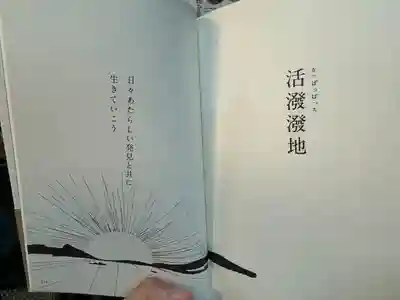 活潑潑地
かっぱつぱっち
日々あたらしい発見と共に
生きていこう